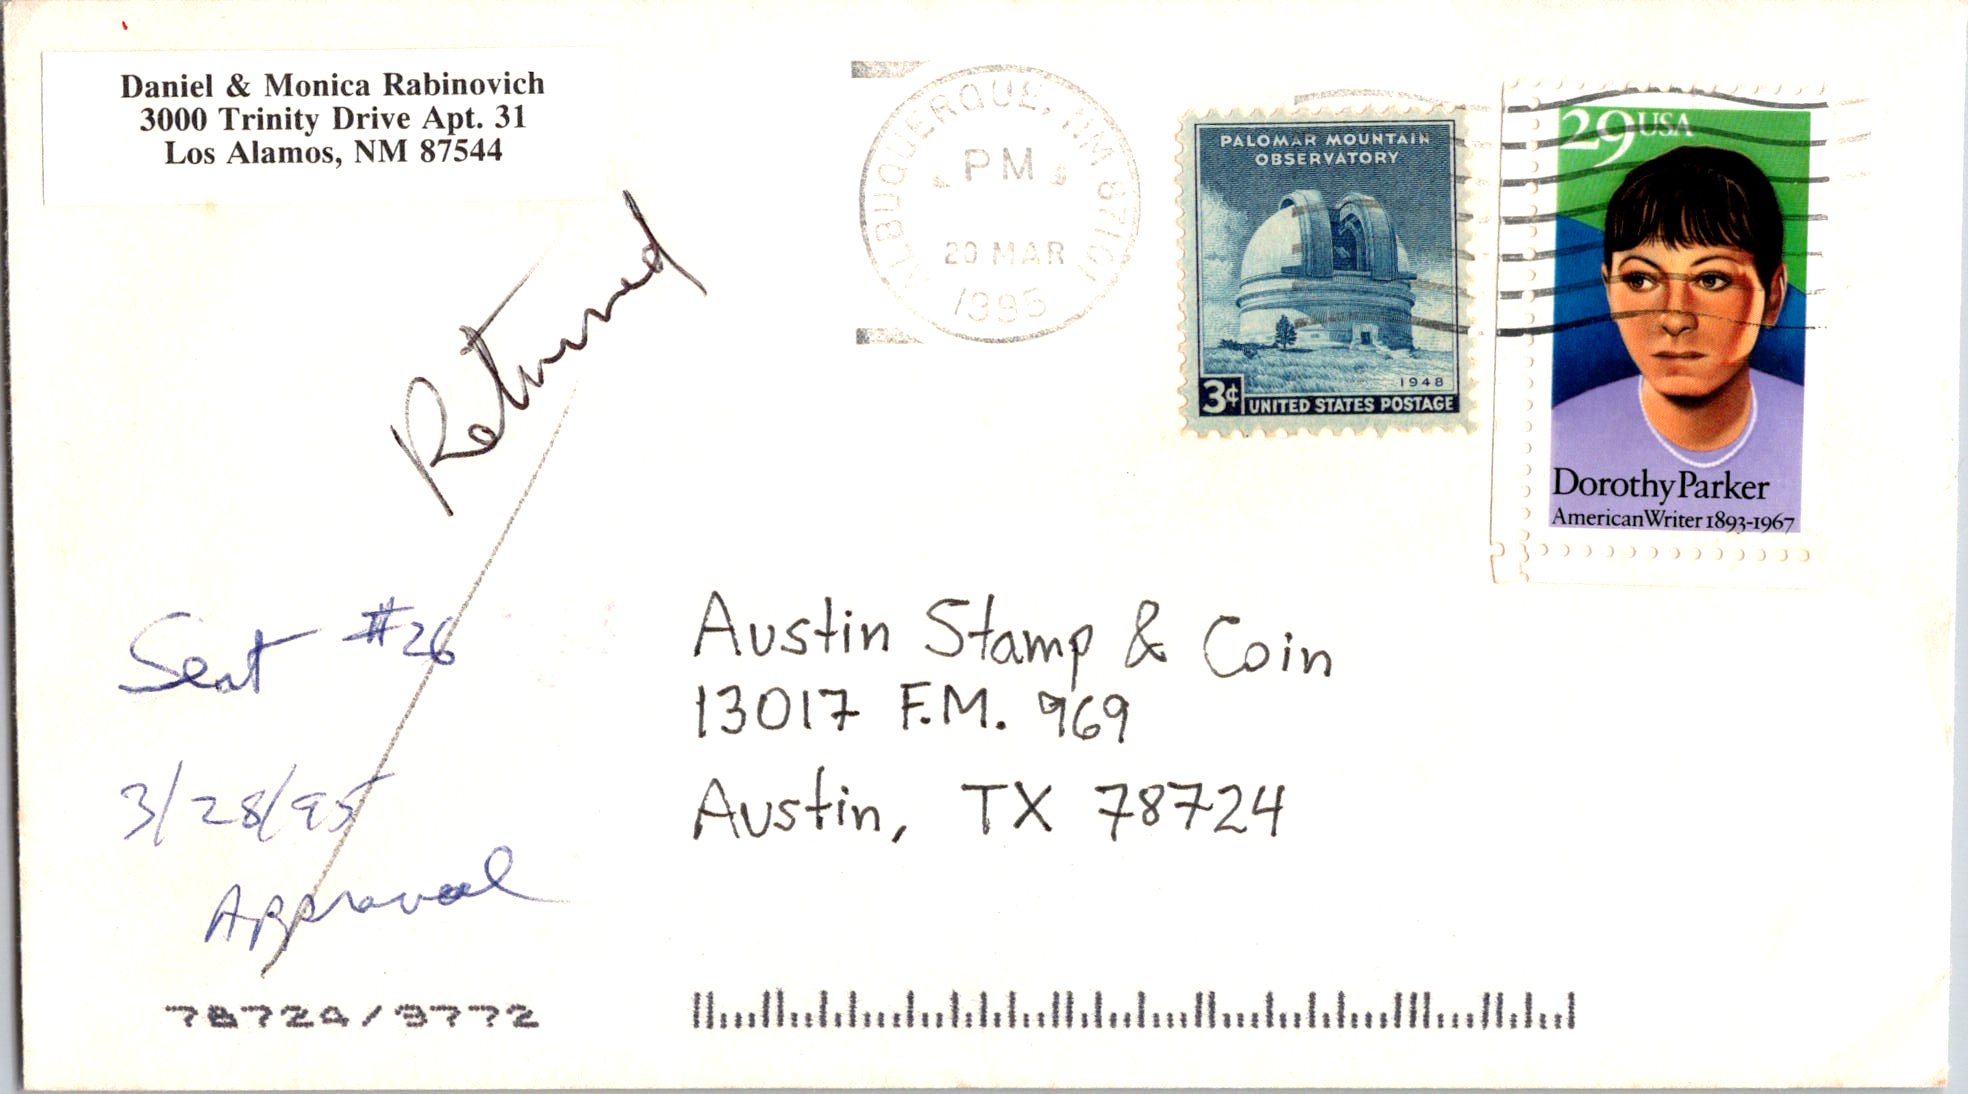 Daniel & Monica Rabinovich
3000 Trinity Drive Apt. 31
Los Alamos, NM 87544
ALBUQUERQUE, NM 87101
PM
20 MAR
1995
PALOMAR MOUNTAIN
OBSERVATORY
1948
3¢ UNITED STATES POSTAGE
29 USA
Dorothy Parker
American Writer 1893-1967
Returned
Sent #26
3/28/95
Approval
Austin Stamp & Coin
13017 F.M. 969
Austin, TX 78724
78724/9772